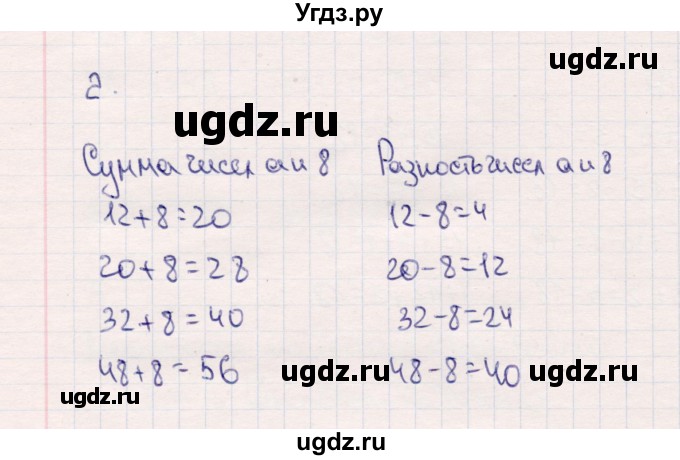 Угдз.ру
ugdz.ru
2.
ugdz.ru
Сумма чисел a и 8
Разность чисел a и 8
12+8=20
12-8=4
ugdz.ru
20+8=28
20-8=12
32+8=40
32-8=24
48+8=56
ugdz.ru
48-8=40
ugdz.ru
ugdz.ru